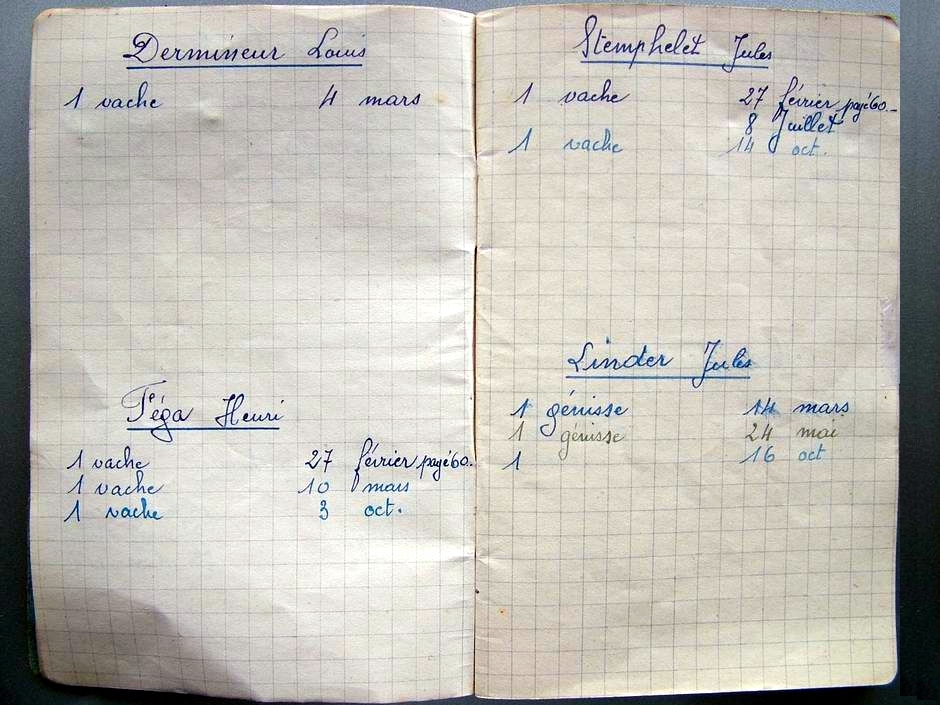 Dermineur Louis
1 vache 4 mars
Féga Henri
1 vache 27 février payé 60.
1 vache 10 mars
1 vache 3 oct.
Stemphelet Jules
1 vache 27 février payé 60.-
8 Juillet
1 vache 14 oct.
Linder Jules
1 génisse 14 mars
1 génisse 24 mai
1 16 oct